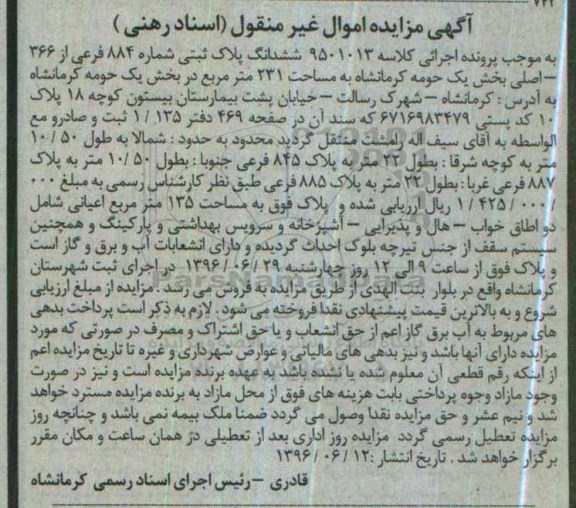 آگهی مزایده اموال غیر منقول (اسناد رهنی)
به موجب پرونده اجرائی کلاسه ۹۵۰۱۰۱۳ ششدانگ پلاک ثبتی شماره ۸۸۴ فرعی از ۳۶۶
–اصلی بخش یک حومه کرمانشاه به مساحت ۲۳۱ متر مربع در بخش یک حومه کرمانشاه
به آدرس : کرمانشاه – شهرک رسالت – خیابان پشت بیمارستان بیستون کوچه ۱۸ پلاک
۱۰ کد پستی ۶۷۱۶۹۸۳۴۷۹ که سند آن در صفحه ۴۶۹ دفتر ۱۳۵ / ۱ ثبت و صادرو مع
الواسطه به آقای سیف اله رامست منتقل گردید محدود به حدود : شمالا به طول ۵۰ / ۱۰
متر به کوچه شرقا : بطول ۲۲ متر به پلاک ۸۴۵ فرعی جنوبا : بطول ۵۰ / ۱۰ متر به پلاک
۸۸۷ فرعی غربا : بطول ۲۲ متر به پلاک ۸۸۵ فرعی طبق نظر کارشناس رسمی به مبلغ ۰۰۰
/ ۰۰۰ / ۴۲۵ / ۱ ریال ارزیابی شده و پلاک فوق به مساحت ۱۳۵ متر مربع اعیانی شامل
دو اطاق خواب – هال و پذیرایی – آشپزخانه و سرویس بهداشتی و پارکینگ و همچنین
سیستم سقف از جنس تیرچه بلوک احداث گردیده و دارای انشعابات آب و برق و گاز است
و پلاک فوق از ساعت ۹ الی ۱۲ روز چهارشنبه ۲۹ / ۰۶ / ۱۳۹۶ در اجرای ثبت شهرستان
کرمانشاه واقع در بلوار بنت الهدی از طریق مزایده به فروش می رسد . مزایده از مبلغ ارزیابی
شروع و به بالاترین قیمت پیشنهادی نقدا فروخته می شود . لازم به ذکر است پرداخت بدهی
های مربوط به آب برق گاز اعم از حق انشعاب و یا حق اشتراک و مصرف در صورتی که مورد
مزایده دارای آنها باشد و نیز بدهی های مالیاتی و عوارض شهرداری و غیره تا تاریخ مزایده اعم
از اینکه رقم قطعی آن معلوم شده یا نشده باشد به عهده برنده مزایده است و نیز در صورت
وجود مازاد وجوه پرداختی بابت هزینه های فوق از محل مازاد به برنده مزایده مسترد خواهد
شد و نیم عشر و حق مزایده نقدا وصول می گردد ضمنا ملک بیمه نمی باشد و چنانچه روز
مزایده تعطیل رسمی گردد مزایده روز اداری بعد از تعطیلی در همان ساعت و مکان مقرر
برگزار خواهد شد . تاریخ انتشار : ۱۲ / ۰۶ / ۱۳۹۶
قادری – رئیس اجرای اسناد رسمی کرمانشاه